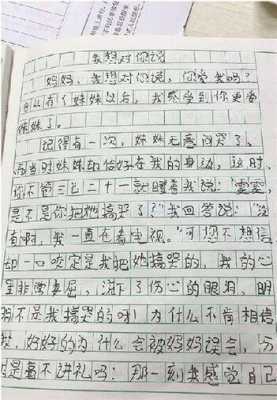 我想对你说
妈妈，我想对你说，你爱我吗？
自从有了妹妹以后，我感受到你更爱
妹妹了。
记得有一次，妹妹无意间哭了，
而当时妹妹却恰好在我的身边，这时
你不管三七二十一就瞪着我说："雯雯
是不是你把她搞哭了？"我回答说："没
有啊，我一直在看电视。"可您不相信
却一口咬定是我把她搞哭的，我的心
里非常委屈，流下了伤心的眼泪，明
明不是我搞哭的呀！为什么不肯相信
我，好好的为什么会被妈妈误会，
是毫不讲礼吗？那一刻我感觉自己